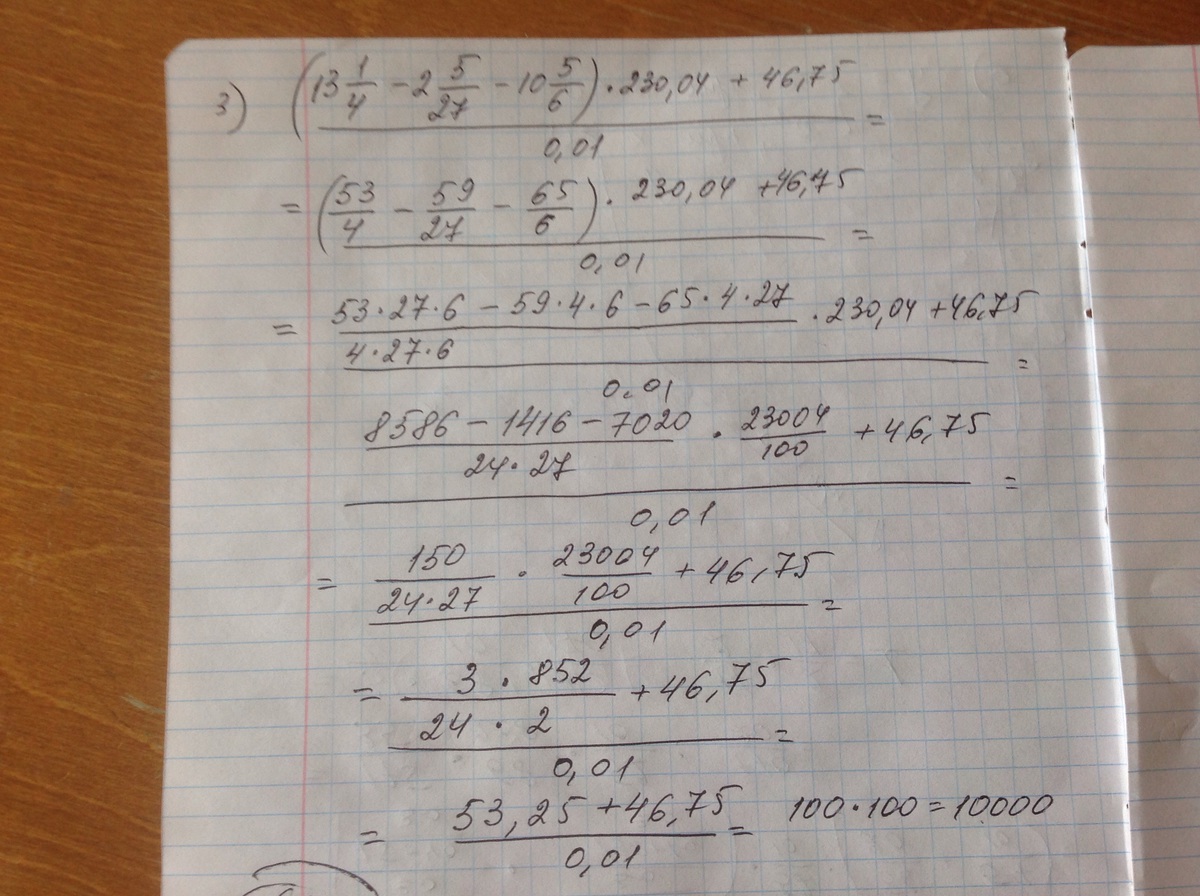 3) (13 1/4 - 2 5/27 - 10 5/6) · 230,04 + 46,75 =
0,01
= (53/4 - 59/27 - 65/6) · 230,04 + 46,75 =
0,01
= 53·27·6 - 59·4·6 - 65·4·27 · 230,04 + 46,75
4·27·6 =
0,01
8586 - 1416 - 7020 · 23004/100 + 46,75
24·27 =
0,01
= 150/24·27 · 23004/100 + 46,75 =
0,01
= 3 · 852 + 46,75
24 · 2 =
0,01
= 53,25 + 46,75 = 100·100 = 10000
0,01